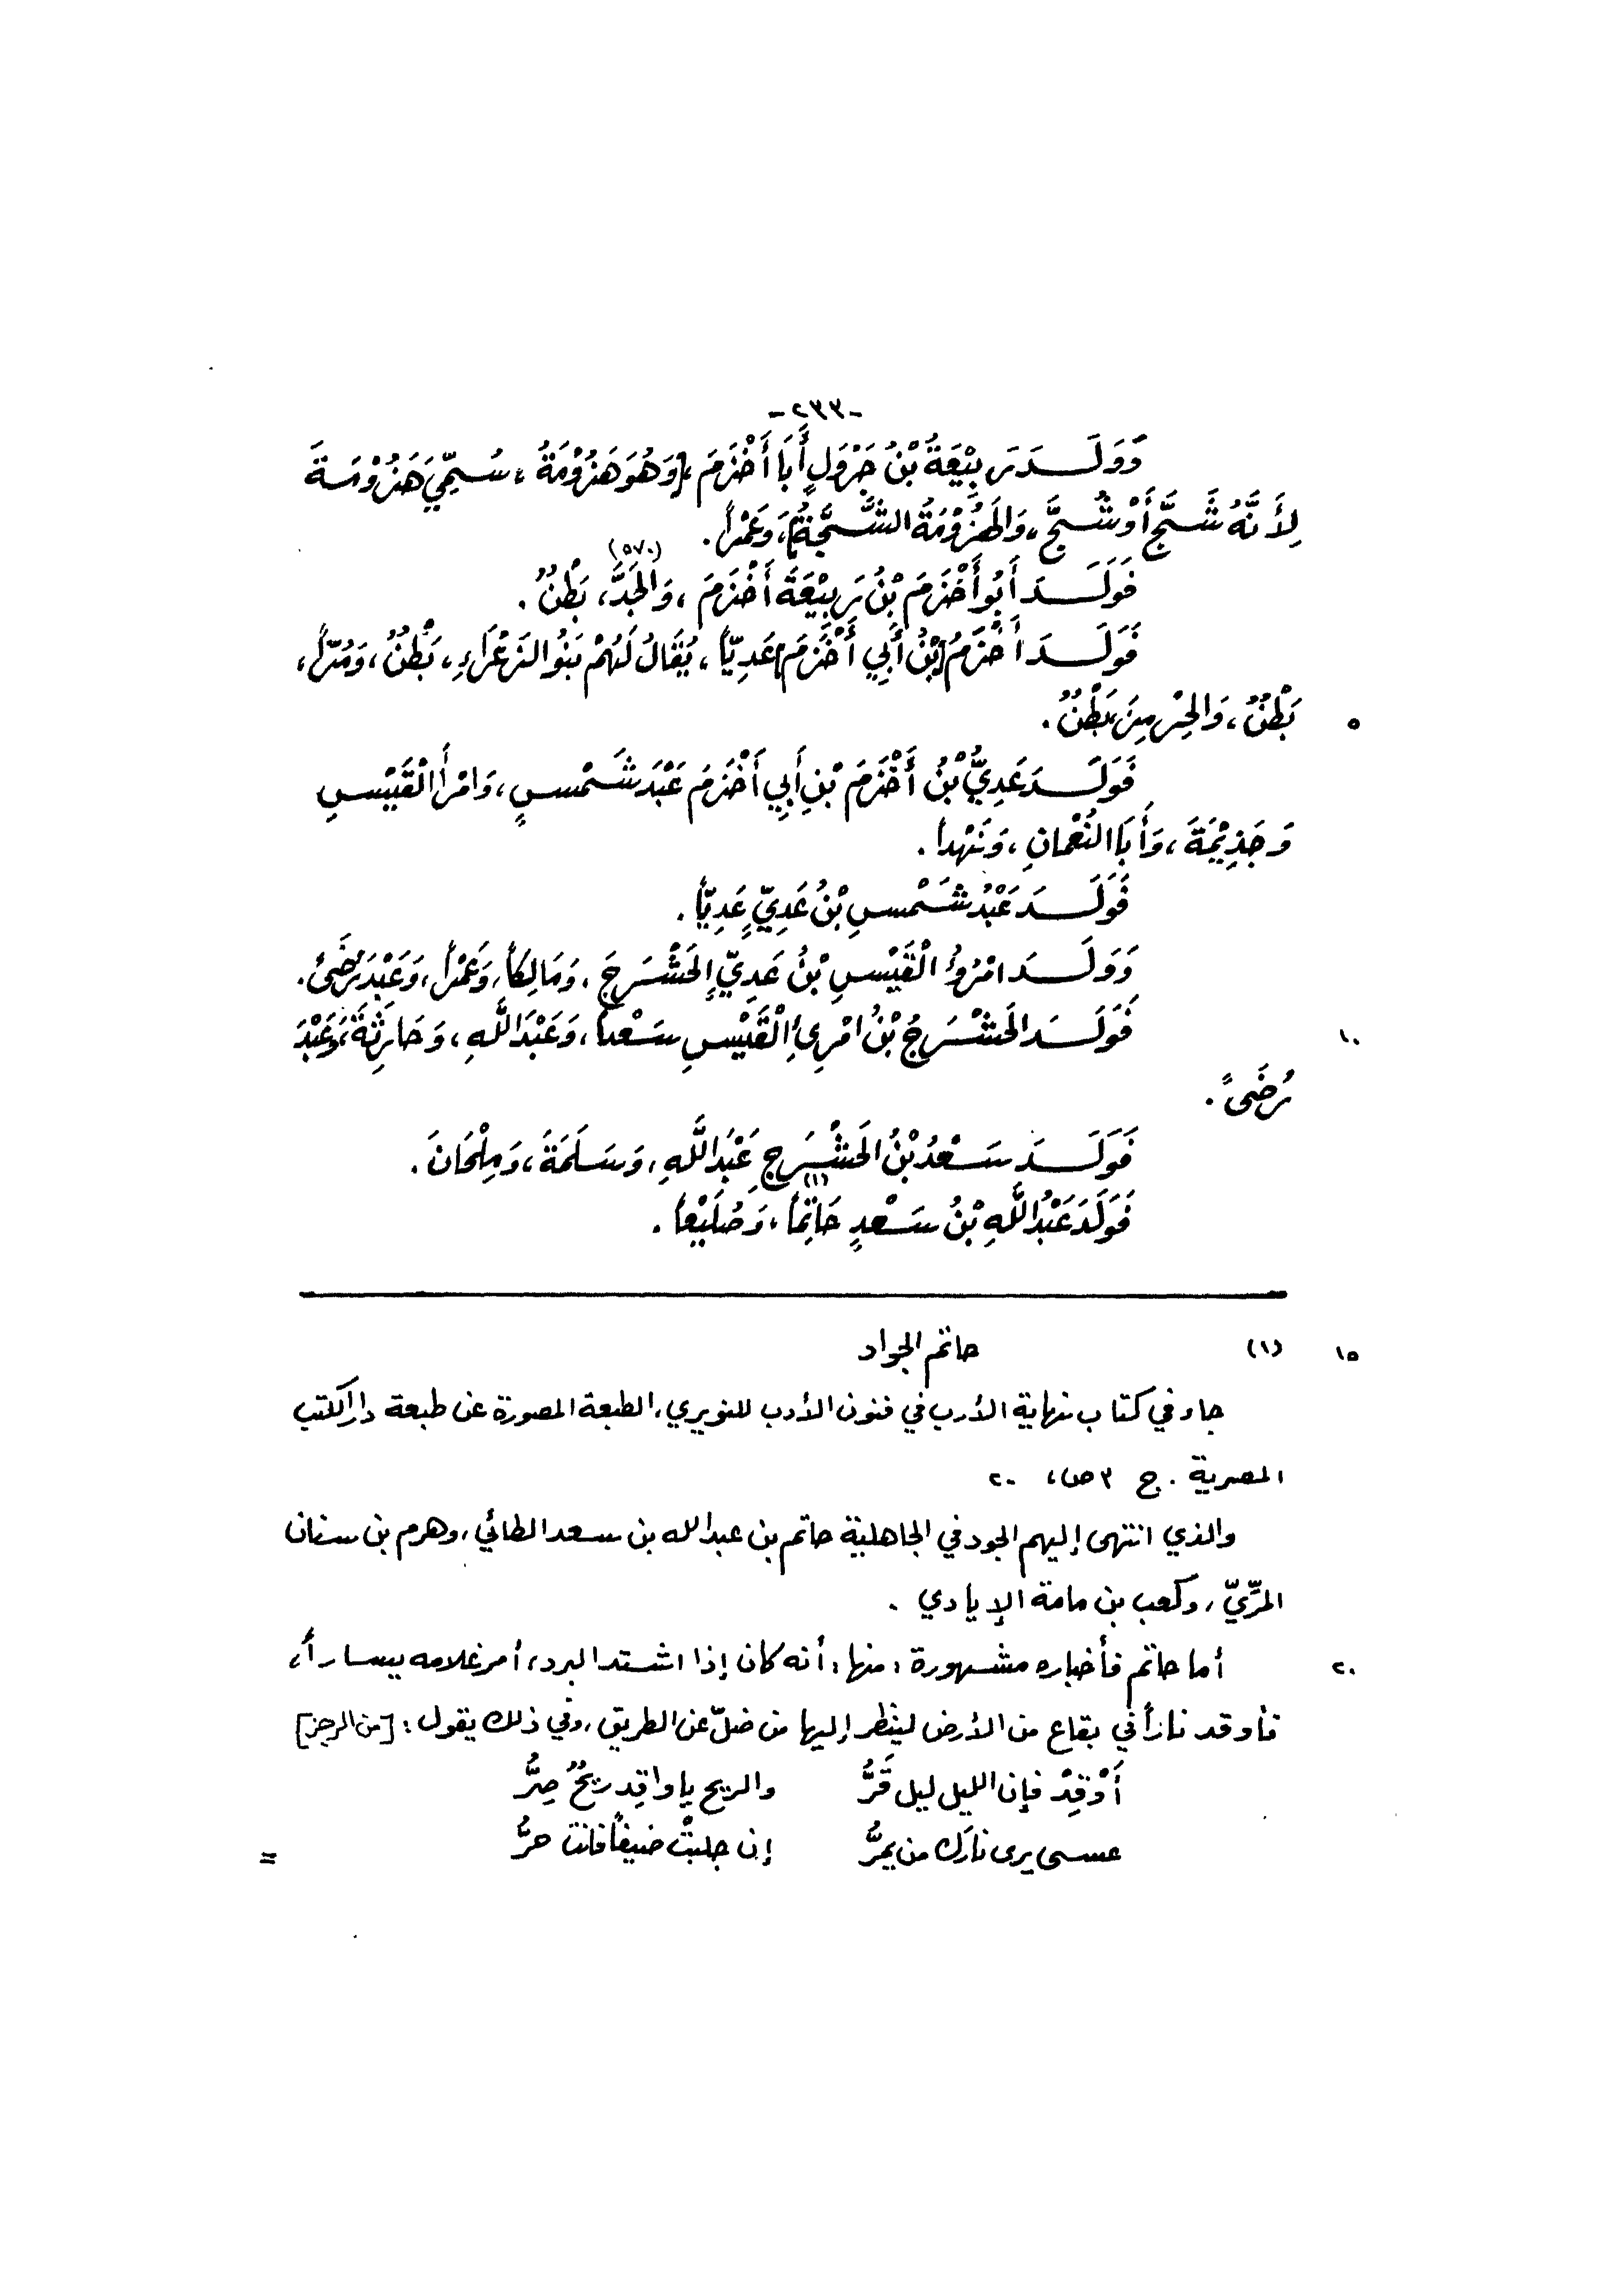 -٢٣٣-
وَوَلَدَ رَبِيْعَةُ بْنُ جَرْوَلٍ أَبَا أَخْزَمَ، [وَهُوَ هَزُوْمَةُ، سُمِّيَ هَزُوْمَةَ
لِأَنَّهُ شَجَّ أَوْ شُجَّ، وَالهَزُوْمَةُ الشَّجَّةُ]، وَعَمْراً.
فَوَلَدَ أَبُو أَخْزَمَ بْنُ رَبِيْعَةَ أَخْزَمَ، وَالجَدَّ، (٥٧٠) بَطْنٌ.
فَوَلَدَ أَخْزَمُ [بْنُ أَبِي أَخْزَمَ] عَدِيّاً، يُقَالُ لَهُمْ بَنُو الزَّعْرَاءِ، بَطْنٌ، وَمُرّاً،
٥ بَطْنٌ، وَالحِرْمِزَ، بَطْنٌ.
فَوَلَدَ عَدِيُّ بْنُ أَخْزَمَ بْنِ أَبِي أَخْزَمَ عَبْدَ شَمْسٍ، وَامْرَأَ الْقَيْسِ
وَجَذِيْمَةَ، وَأَبَا النُّعْمَانِ، وَنَهْداً.
فَوَلَدَ عَبْدُ شَمْسِ بْنُ عَدِيٍّ عَدِيّاً.
وَوَلَدَ امْرُؤُ الْقَيْسِ بْنُ عَدِيٍّ الحَشْرَجَ، وَمَالِكاً، وَعَمْراً، وَعَبْدَ رُضَىً.
١٠ فَوَلَدَ الحَشْرَجُ بْنُ امْرِئِ الْقَيْسِ سَعْداً، وَعَبْدَ اللَّهِ، وَحَارِثَةَ، وَعَبْدَ
رُضَىً.
فَوَلَدَ سَعْدُ بْنُ الحَشْرَجِ عَبْدَ اللَّهِ، وَسَلَمَةَ، وَمِلْحَانَ.
فَوَلَدَ عَبْدُ اللَّهِ بْنُ سَعْدٍ حَاتِماً (١)، وَصُلَيْعاً.
١٥ (١) حاتم الجواد
جاء في كتاب نهاية الأرب في فنون الأدب للنويري، الطبعة المصورة عن طبعة دار الكتب
المصرية . ج ٣ ص، ٢٠
والذي انتهى إليهم الجود في الجاهلية حاتم بن عبد الله بن سعد الطائي، وهرم بن سنان
المرّيّ، وكعب بن مامة الإيادي .
٢٠ أما حاتم فأخباره مشهورة، منها: أنه كان إذا اشتد البرد، أمر غلامه يساراً،
فأوقد ناراً في بقاع من الأرض لينظر إليها من ضلّ عن الطريق، وفي ذلك يقول: [من الرجز]
أَوْقِدْ فإن الليل ليل قَرُّ والريح يا واقِد ريحٌ صِرُّ
عسى يرى نارَك من يمرُّ إن جلبتْ ضيفاً فانت حرُّ
=